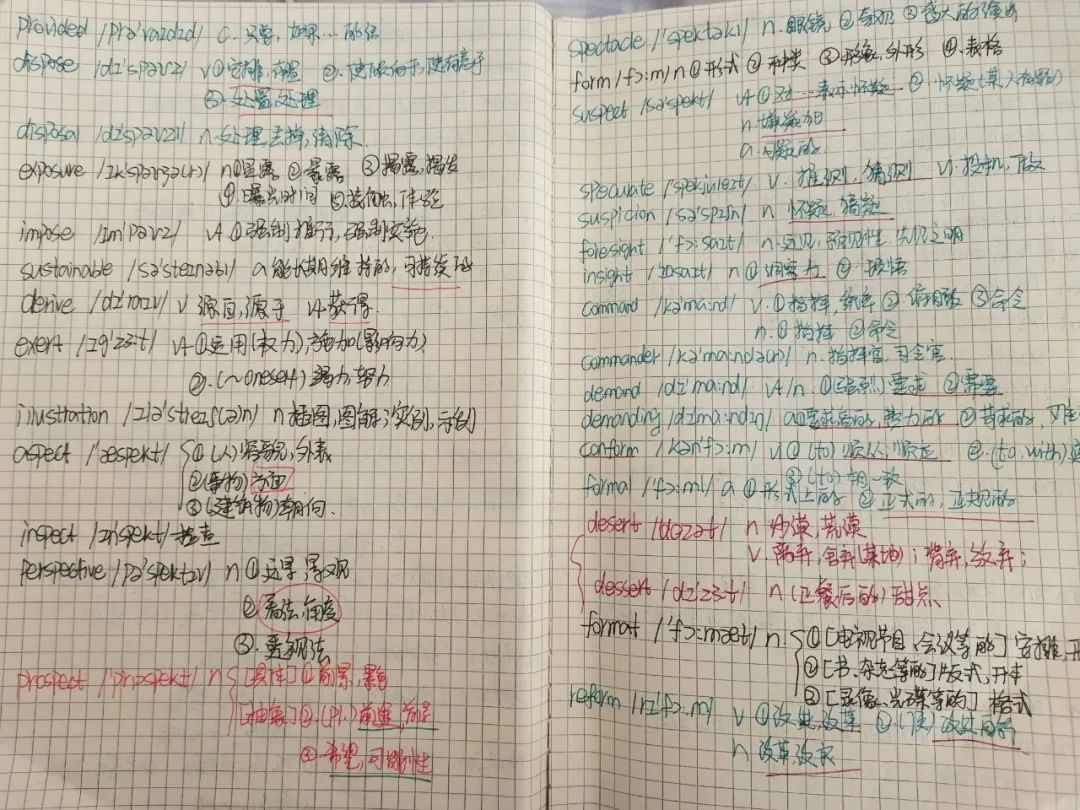 provided /prə'vaɪdɪd/ c. 只要, 如果…的话
dispose /dɪ'spəʊz/ v ①安排, 布置 ②使倾向于, 使有意于
③.处置,处理
disposal /dɪ'spəʊzl/ n 处理 去掉,清除.
exposure /ɪk'spəʊʒə(r)/ n ①显露 ②暴露 ③揭露,揭发
④.曝光时间 ⑤接触,体验
impose /ɪm'pəʊz/ vt ①强制推行,强制实施
sustainable /sə'steɪnəbl/ a 能长期维持的,可持续的
derive /dɪ'raɪv/ v 源自,源于 vt 获得.
exert /ɪg'zɜ:t/ vt ①运用(权力),施加(影响力)
②.(~oneself) 竭力,努力
illustration /ɪlə'streɪʃ(ə)n/ n 插图,图解;实例,示例
aspect /'æspekt/ ①(人)容貌,外表
②(事物)方面
③(建筑物)朝向.
inspect /ɪnspekt/ 检查
perspective /pə'spektɪv/ n ①远景,景观
②看法,角度
③.透视法
prospect /'prɒspekt/ n [具体]①前景,景色
[抽象]②.(pl.)前途,前景
③.希望,可能性
spectacle /'spektəkl/ n.眼镜, ②奇观 ③盛大的演出
form /fɔ:m/ n ①形式 ②种类 ③形象,外形 ④.表格
suspect /sə'spekt/ vt ①对…表示怀疑
n.嫌疑犯
a.可疑的
specuate /spekjuleɪt/ v.推测,猜测 vi.投机,
suspicion /sə'spɪʃn/ n 怀疑,猜疑
foresight /'fɔ:saɪt/ n.远见,预见性.先见之明
insight /ɪnsaɪt/ n ①洞察力 ②领悟
command /kə'mɑ:nd/ v.①指挥,统率 ③命令
n.①指挥 ②命令
commander /kə'mɑ:ndə(r)/ n.指挥官,司令官.
demand /dɪ'mɑ:nd/ vt/n.①(强烈)要求 ②需要
demanding /dɪmɑ:ndɪŋ/ a ①要求高的,费力的 ②苛求的,
conform /kənfɔ:m/ v ①(to)顺从,顺应 ②.(to,with)
③(to)相一致
formal /fɔ:ml/ a ①形式上的 ②正式的,正规的
desert /'dezət/ n 沙漠,荒漠
v.离弃,舍弃(某地);背弃,放弃;
dessert /dɪ'zɜ:t/ n (正餐后的)甜点.
format /'fɔ:mæt/ n.①[电视节目、会议等的]安排,
②[书、杂志等的]版式,开本
③[录像、光碟等的]格式
reform /rɪ'fɔ:m/ v ①改进,改革 ②(使)改过自新
n 改革,改良